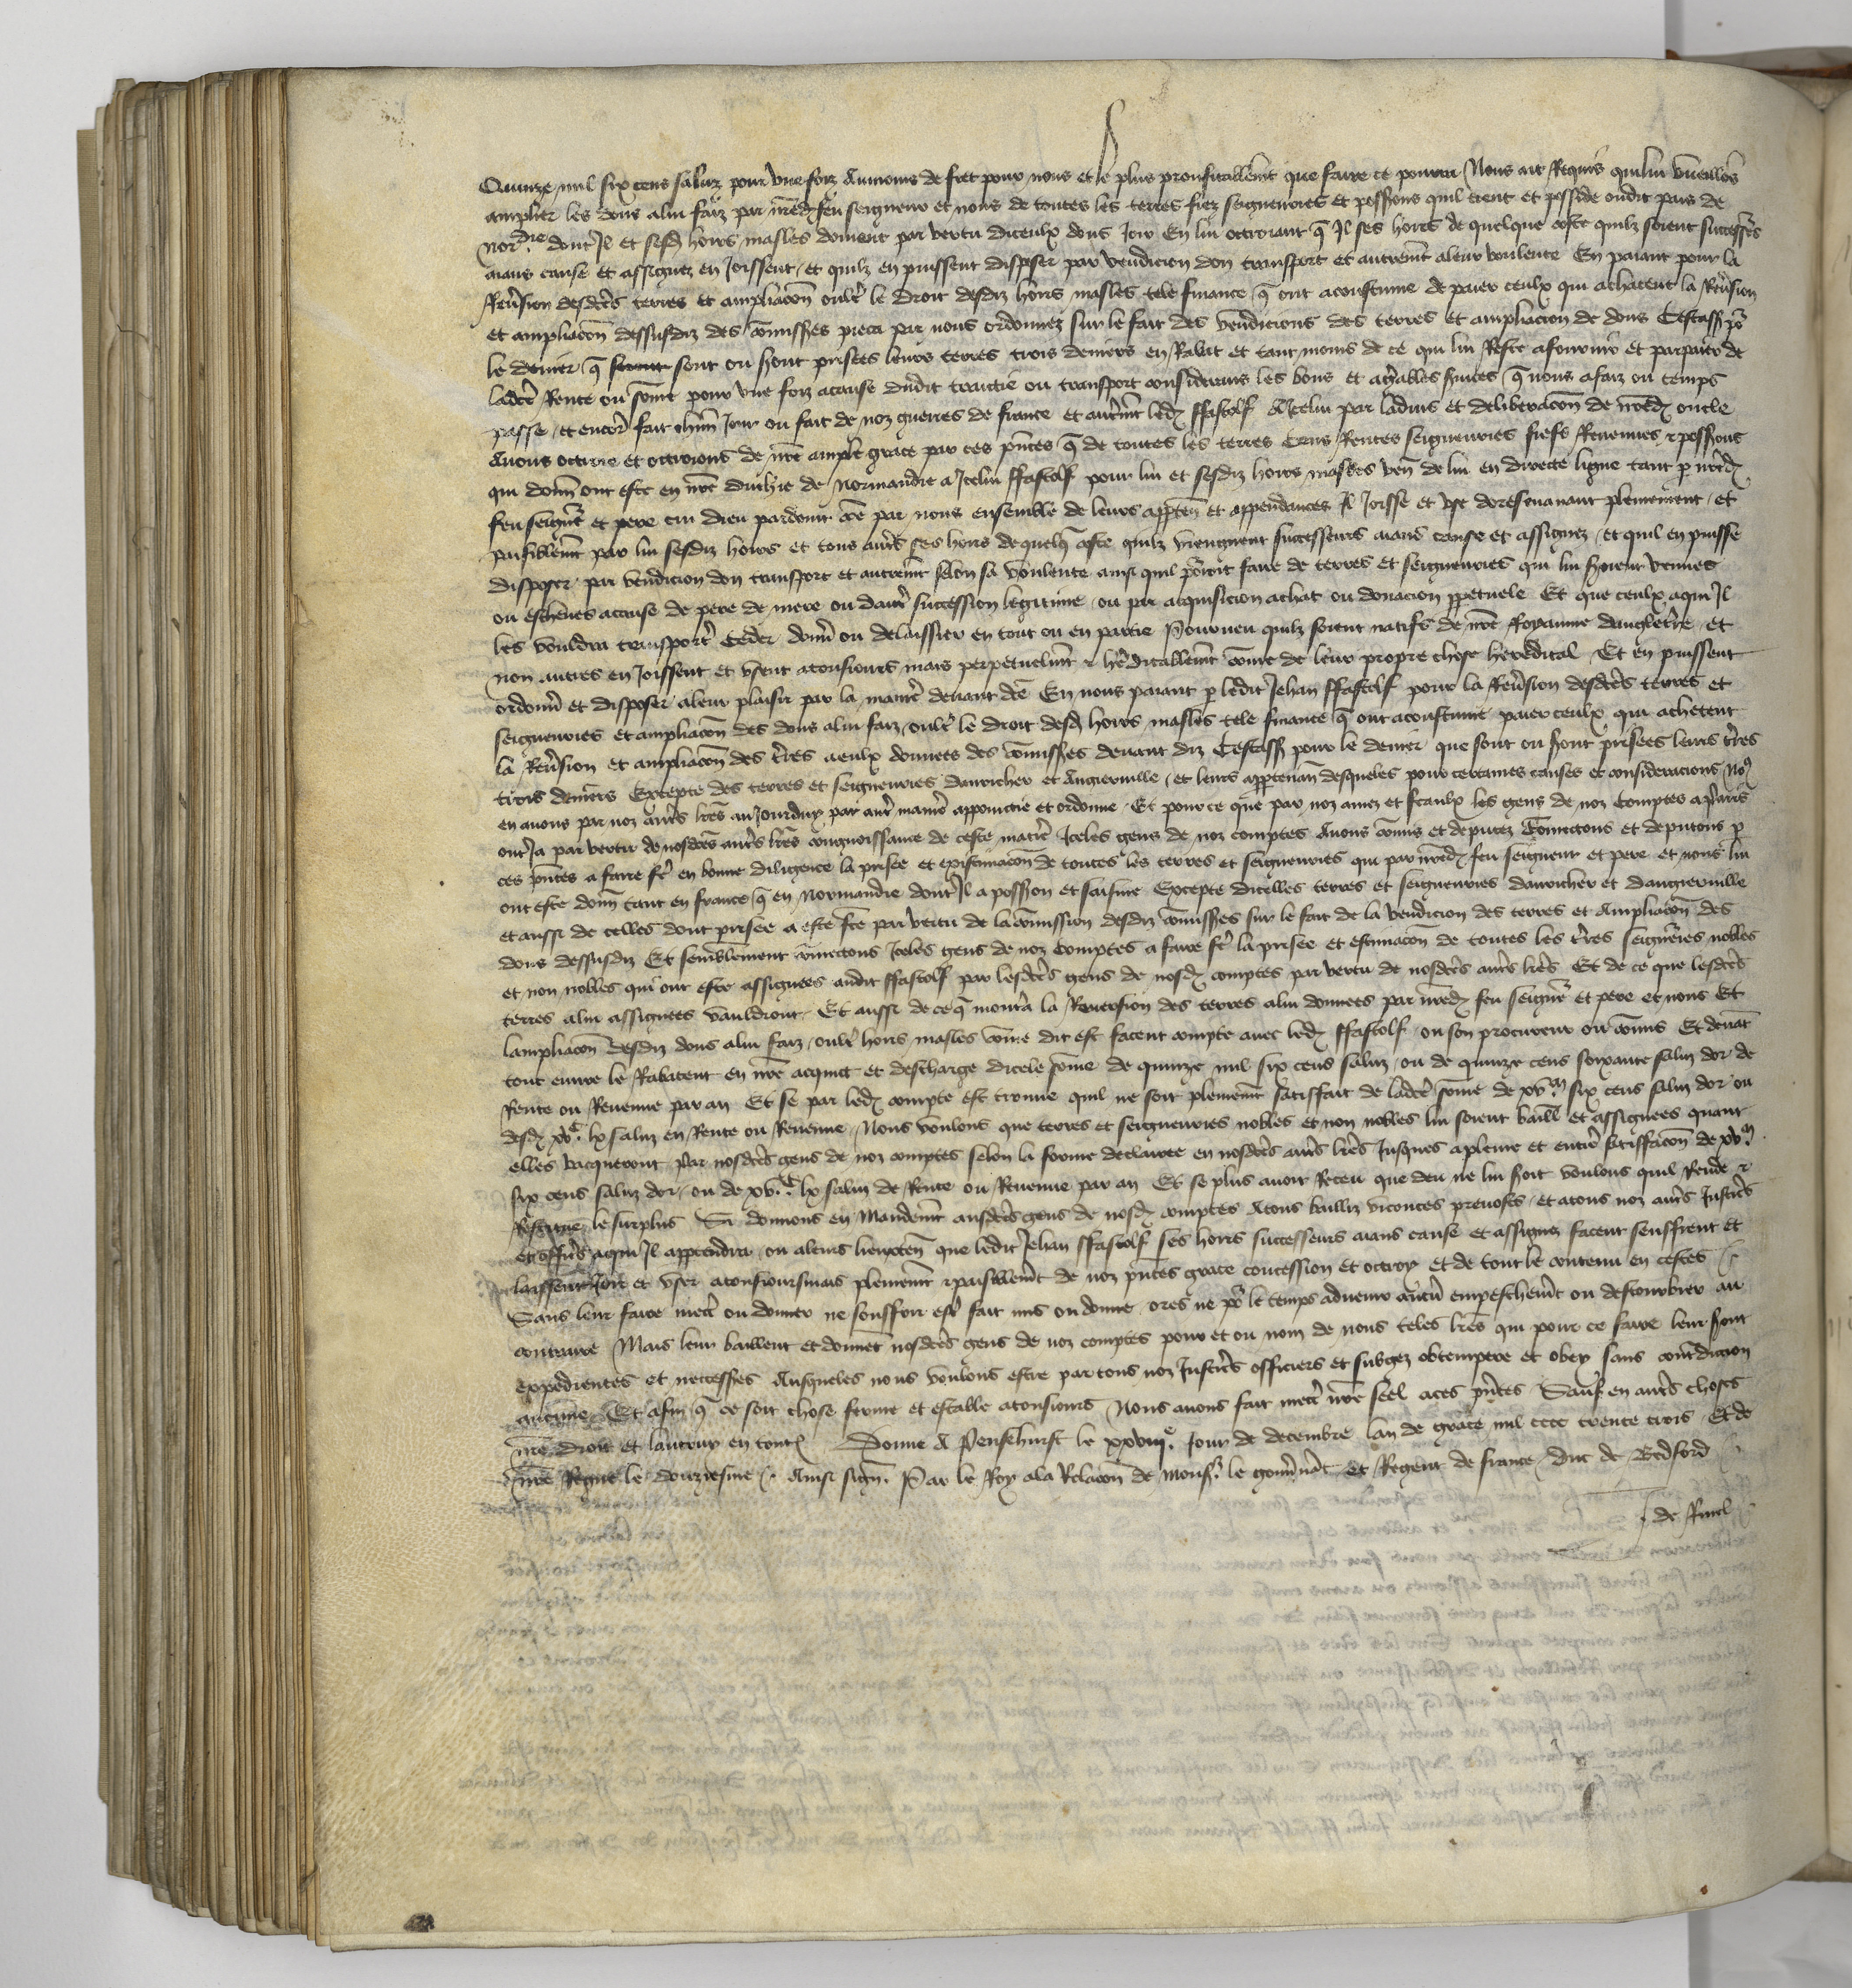 Quinze mil six cens saluz pour une foiz Aumoins de fret pour nous et le plus proufitablemt que faire ce pourra Nous ait Requis quil lui vueillos
amplier les dons alui faiz par nredz feu seigneur et nous de toutes les terres fiez seigneuries et possions quil tient et posside oudit pais de
Nordie dont Il et sesd hoirs masles doivent par vertu diceulx dons Joir En lui octroiant q Il ses hoirs de quelque coste quilz soient successrs
aians cause et assignez en Joissent et quilz en puissent disposer par vendicion don transport et autremt aleur voulente En paiant pour la
Reusion desdcs terres et ampliacon oult le droit desdiz hoirs masles tele finance q ont acoustume de paier ceulx qui achatent la Reusion
et ampliacon dessusdiz des comisses pieca par nous ordonnez sur le fait des vendicions des terres et ampliacion de dons Cestass po
le denier q sont ou sont prisees leurs terres trois deniers en Rabat et tant moins de ce qui lui Reste afournir et parpaier de
ladce Rente ou some pour une foiz acause dudit traictie ou transport considerans les bons et agables suices q nous a faiz ou temps
passe et encor fait chun Jour ou fait de noz guerres de france et autrmt ledz ffastolf A Icelui par ladvis et deliberacon de nredz oncle
Avons octroie et octroions de nre ample grace par ces pntes q de toutes les terres Cens Rentes seigneuries fiefs Revenues & possions
qui donn ont este en nre duchie de Normandie a Icelui ffastolf pour lui et sesdiz hoirs masles ven de lui en directe ligne tant p nredz
feu seigneur et pere cui dieu pardoint coe par nous ensemble de leurs apptenn et appendances Il Joisse et use doresenavant plainement et
paisiblemt par lui sesdiz hoirs et tous autrs ses hoirs de quelq coste quilz viengnent successeurs aians cause et assignez et quil en puisse
disposer par vendicion don transport et autremt selon sa voulente ainsi quil porroit faire de terres et seigneuries qui lui seroient venues
ou escheues acause de pere de mere ou dautr succession legitime ou par acquisicion achat ou donacion ppetuele Et que ceulx aqui Il
les vouldra transporter Ceder donn ou delaissier en tout ou en partie Pourveu quilz soient natifs de nre Royaume dangletre et
non autres en Joissent et usent atousiours mais perpetuelmt & heditablemt come de leur propre chose heredital Et en puissent
ordonn et disposer aleur plaisir par la manire devant dce En nous paiant p ledit Jehan ffastolf pour la Reusion desdcs terres et
seigneuries et ampliacon des dons alui faiz oult le droit desdz hoirs masles tele finance q ont acoustume paier ceulx qui achetent
la Reusion et ampliacon des tres aeulx donnees des comisses devant diz Cestass pour le denier que sont ou sont prisees leurs tres
trois deniers Excepte des terres et seigneuries dauricher et Angerville et leurs apptenan desqueles pour certaines causes et consideracions Noz
en avons par noz autrs lres au Jourduy par autr manie appointie et ordonne Et pour ce que par noz amez et feaulx les gens de noz Comptes aparis
ont Ja par vertu de nosdcs autrs lres congnoissance de ceste matie Iceles gens de noz comptes Avons comis et deputez Comectons et deputons p
ces pntes a faire fe en bonne diligence la prisee et extimacon de toutes les terres et seigneuries qui par nredz feu seigneur et pere et nous lui
ont este donn tant en france q en Normandie dont Il a possion et saisine Excepte dicelles terres et seigneuries dauricher et dangierville
et aussi de celles dont prisee a este fce par vertu de la comission desdiz comisses sur le fait de la vendicion des terres et Ampliacon des
dons dessusdiz Et semblement comectons Iceles gens de noz comptes a faire fe la prisee et estimacon de toutes les tres seigneries nobles
et non nobles qui ont este assignees audit ffastolf par lesdcs gens de nosdz comptes par vertu de nosdcs autrs lres Et de ce que lesdcs
terres alui assignees vauldront Et aussi de ce q montra la Reversion des terres alui donnees par nredz feu seigneur et pere et nous Et
lampliacon desdiz dons alui faiz oult hoirs masles come dit est facent compte avec ledz ffastolf ou son procureur ou comis Et devat
tout euvre le Rabatent en nre acquict et descharge dicele some de quinze mil six cens saluz ou de quinze cens soixante saluz dor de
Rente ou Revenue par an Et se par ledz compte est trouve quil ne soit plainemt satisfait de ladce some de xvm six cens saluz dor ou
desdz xvc lx saluz en Rente ou Revenue Nous voulons que terres et seigneuries nobles et non nobles lui soient baill et assignees quant
elles vacqueront Par nosdcs gens de noz comptes selon la forme declairee en nosdcs autrs lres Jusques apleine et entie satisfacon de xvm
six cens saluz dor ou de xvc lx saluz de Rente ou Revenue par an Et se plus avoit Receu que deu ne lui soit voulons quil Rende &
Restitue le surplus Si donnons en Mandemt ausdcs gens de nosdz comptes Atous bailliz vicontes prevosts et atous noz autrs Justics
et offics aqui Il appendra ou aleurs lieuxten que ledit Jehan ffastolf ses hoirs successeurs aians cause et assignez facent seuffrent et
laissent Joir et user atousioursmais plainemt & paisiblemt de noz pntes grace concession et octroy et de tout le contenu en cestes
Sans leur faire mect ou donner ne souffrir est fait mis ou donne ores ne po le temps advenir aucun empeschemt ou destourbier au
contraire Mais leur baillent et donnet nosdcs gens de noz comptes pour et ou nom de nous teles lres qui pour ce faire leur sont
expedientes et necesses Ausqueles nous voulons estre par tous noz Justics officiers et subgez obtempere et obey sans contdiction
aucune Et afin q ce soit chose ferme et estable atousiours Nous avons fait mect nre seel aces pntes Sauf en autrs choses
nre droit et lautruy en toutes Donne A Penshurst le xxviiie Jour de decembre lan de grace mil cccc trente trois Et de
nre Regne le douziesme Ainsi sign Par le Roy ala Relacon de Monsr le gouvnat et Regent de france duc de Bedford
de Rinel